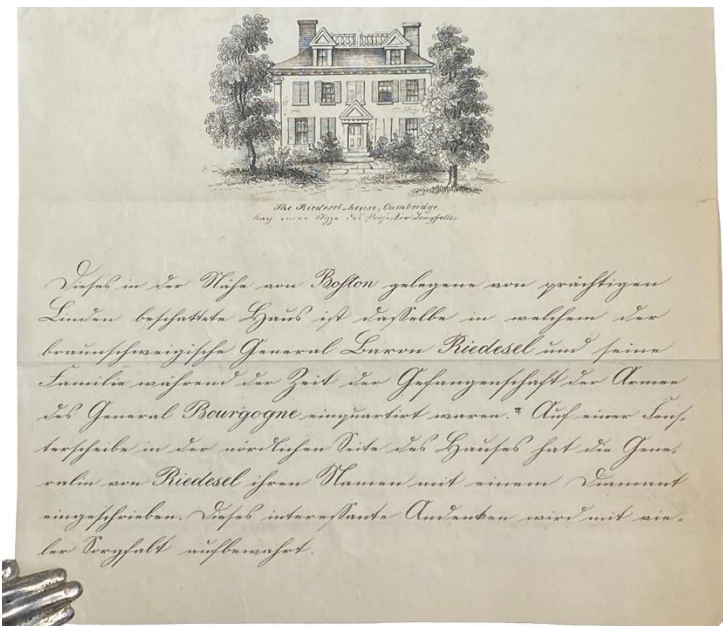 The Riedesel house, Cambridge.
nach einer Skizze des Professor Longfellow
Dieses in der Nähe von Boston gelegene von prächtigen
Linden beschattete Haus ist dasselbe in welchem der
braunschweigische General Baron Riedesel und seine
Familie während der Zeit der Gefangenschaft der Armee
des General Bourgogne einquartirt waren. Auf einer Fens-
terscheibe in der nördlichen Seite des Hauses hat die Gene-
ralin von Riedesel ihren Namen mit einem Diamant
eingeschrieben. Dieses interessante Andenken wird mit vie-
ler Sorgfalt aufbewahrt.